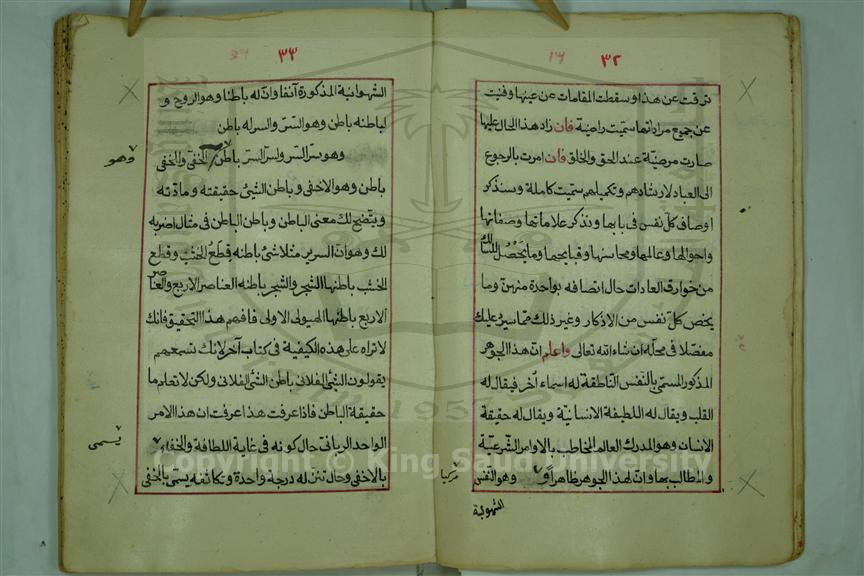 ٣٢
ترقت عن هذا وسقطت المقامات عن عينها وفنيت
عن جميع مراداتها سميت راضية فان زاد هذا الحال عليها
صارت مرضية عند الحق والخلق فان امرت بالرجوع
الى العباد لارشادهم وتكميلهم سميت كاملة وسنذكر
اوصاف كل نفس في بابها ونذكر علاماتها وصفاتها
واحوالها وعالمها ومحاسنها وقبايحها وما يحصل للسالك
من خوارق العادات حال اتصافه بواحدة منهن وما
يخص كل نفس من الاذكار وغير ذلك مما سيرد عليك
مفصلا في محله ان شاء الله تعالى واعلم ان هذا الجوهر
المذكور المسمى بالنفس الناطقة له اسماء اخر فيقال له
القلب ويقال له اللطيفة الانسانية ويقال له حقيقة
الانسان وهو المدرك العالم المخاطب بالاوامر الشرعية
والمطالب بها وان لهذا الجوهر ظاهرا و وهو النفس
الشهوانية
٣٣
الشهوانية المذكورة آنفا وان له باطنا وهو الروح و
لباطنه باطن وهو السر والسر له باطن
وهو سر السر ولسر السر باطن الخفي والخفي
وهو
باطن وهو الاخفى وباطن الشئ حقيقته ومادته
ويتضح لك معنى الباطن وباطن الباطن في مثال اضربه
لك وهو ان السرير مثلا شئ باطنه قطع الخشب وقطع
الخشب باطنها الشجر والشجر باطنه العناصر الاربع والعناصر
الاربع باطنها الهيولى الاولى فافهم هذا التحقيق فانك
لا تراه على هذه الكيفية في كتاب آخر لانك تسمعهم
يقولون الشئ الفلاني باطن الشئ الفلاني ولكن لا تعلم ما
حقيقة الباطن فاذا عرفت هذا عرفت ان هذا الامر
الواحد الرباني حال كونه في غاية اللطافة والخفاء
يسمى
بالاخفى وحال تنزله درجة واحدة وتكاثفه يسمى بالخفي
Copyright © King Saud University
1957